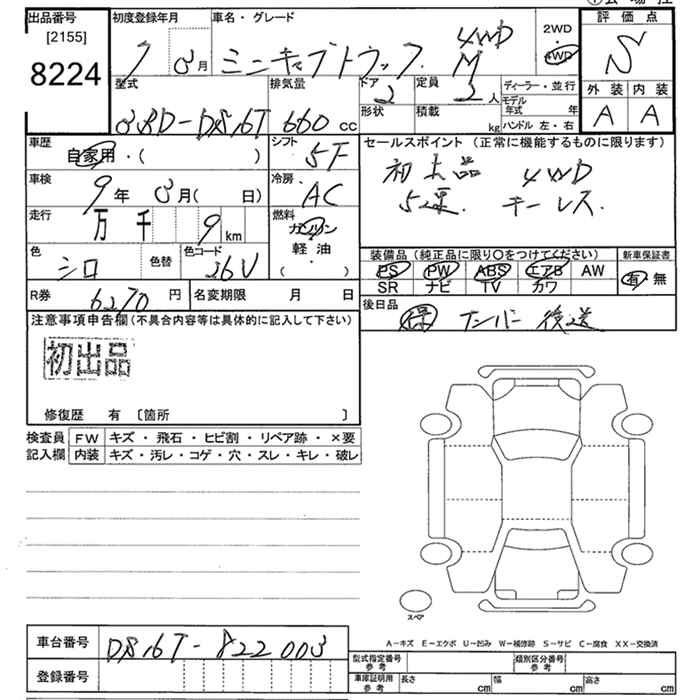 出品番号 初度登録年月 車名・グレード 評価点
[2155]
8224
7 8月 ミニキャブトラック 4WD M 2WD 4WD S
型式 排気量 ドア 定員 ディーラー・並行 外装 内装
3BD-DS16T 660cc 2 2人 モデル年式 年 A A
形状 積載 kg ハンドル 左・右
車歴 シフト セールスポイント(正常に機能するものに限ります)
自家用・( ) 5F 初出品 4WD
車検 冷房
9年 8月( 日) AC 5速. キーレス.
走行 燃料
万 千 9km ガソリン
軽油
( )
色 色替 色コード 装備品(純正品に限り〇をつけてください) 新車保証書
シロ 26U PS PW ABS エアB AW 有 無
SR ナビ TV カワ
R券 6270円 名変期限 月 日 後日品
注意事項申告欄(不具合内容等は具体的に記入して下さい) ナンバー 後送
初出品
修復歴 有 〔箇所 〕
検査員 FW キズ・飛石・ヒビ割・リペア跡・×要
記入欄 内装 キズ・汚レ・コゲ・穴・スレ・キレ・破レ
スペア
A-キズ E-エクボ U-凹み W-補修跡 S-サビ C-腐食 XX-交換済
車台番号 DS16T-822003
登録番号
型式指定番号参考 類別区分番号参考
車庫証明用参考 長さ cm 幅 cm 高さ cm